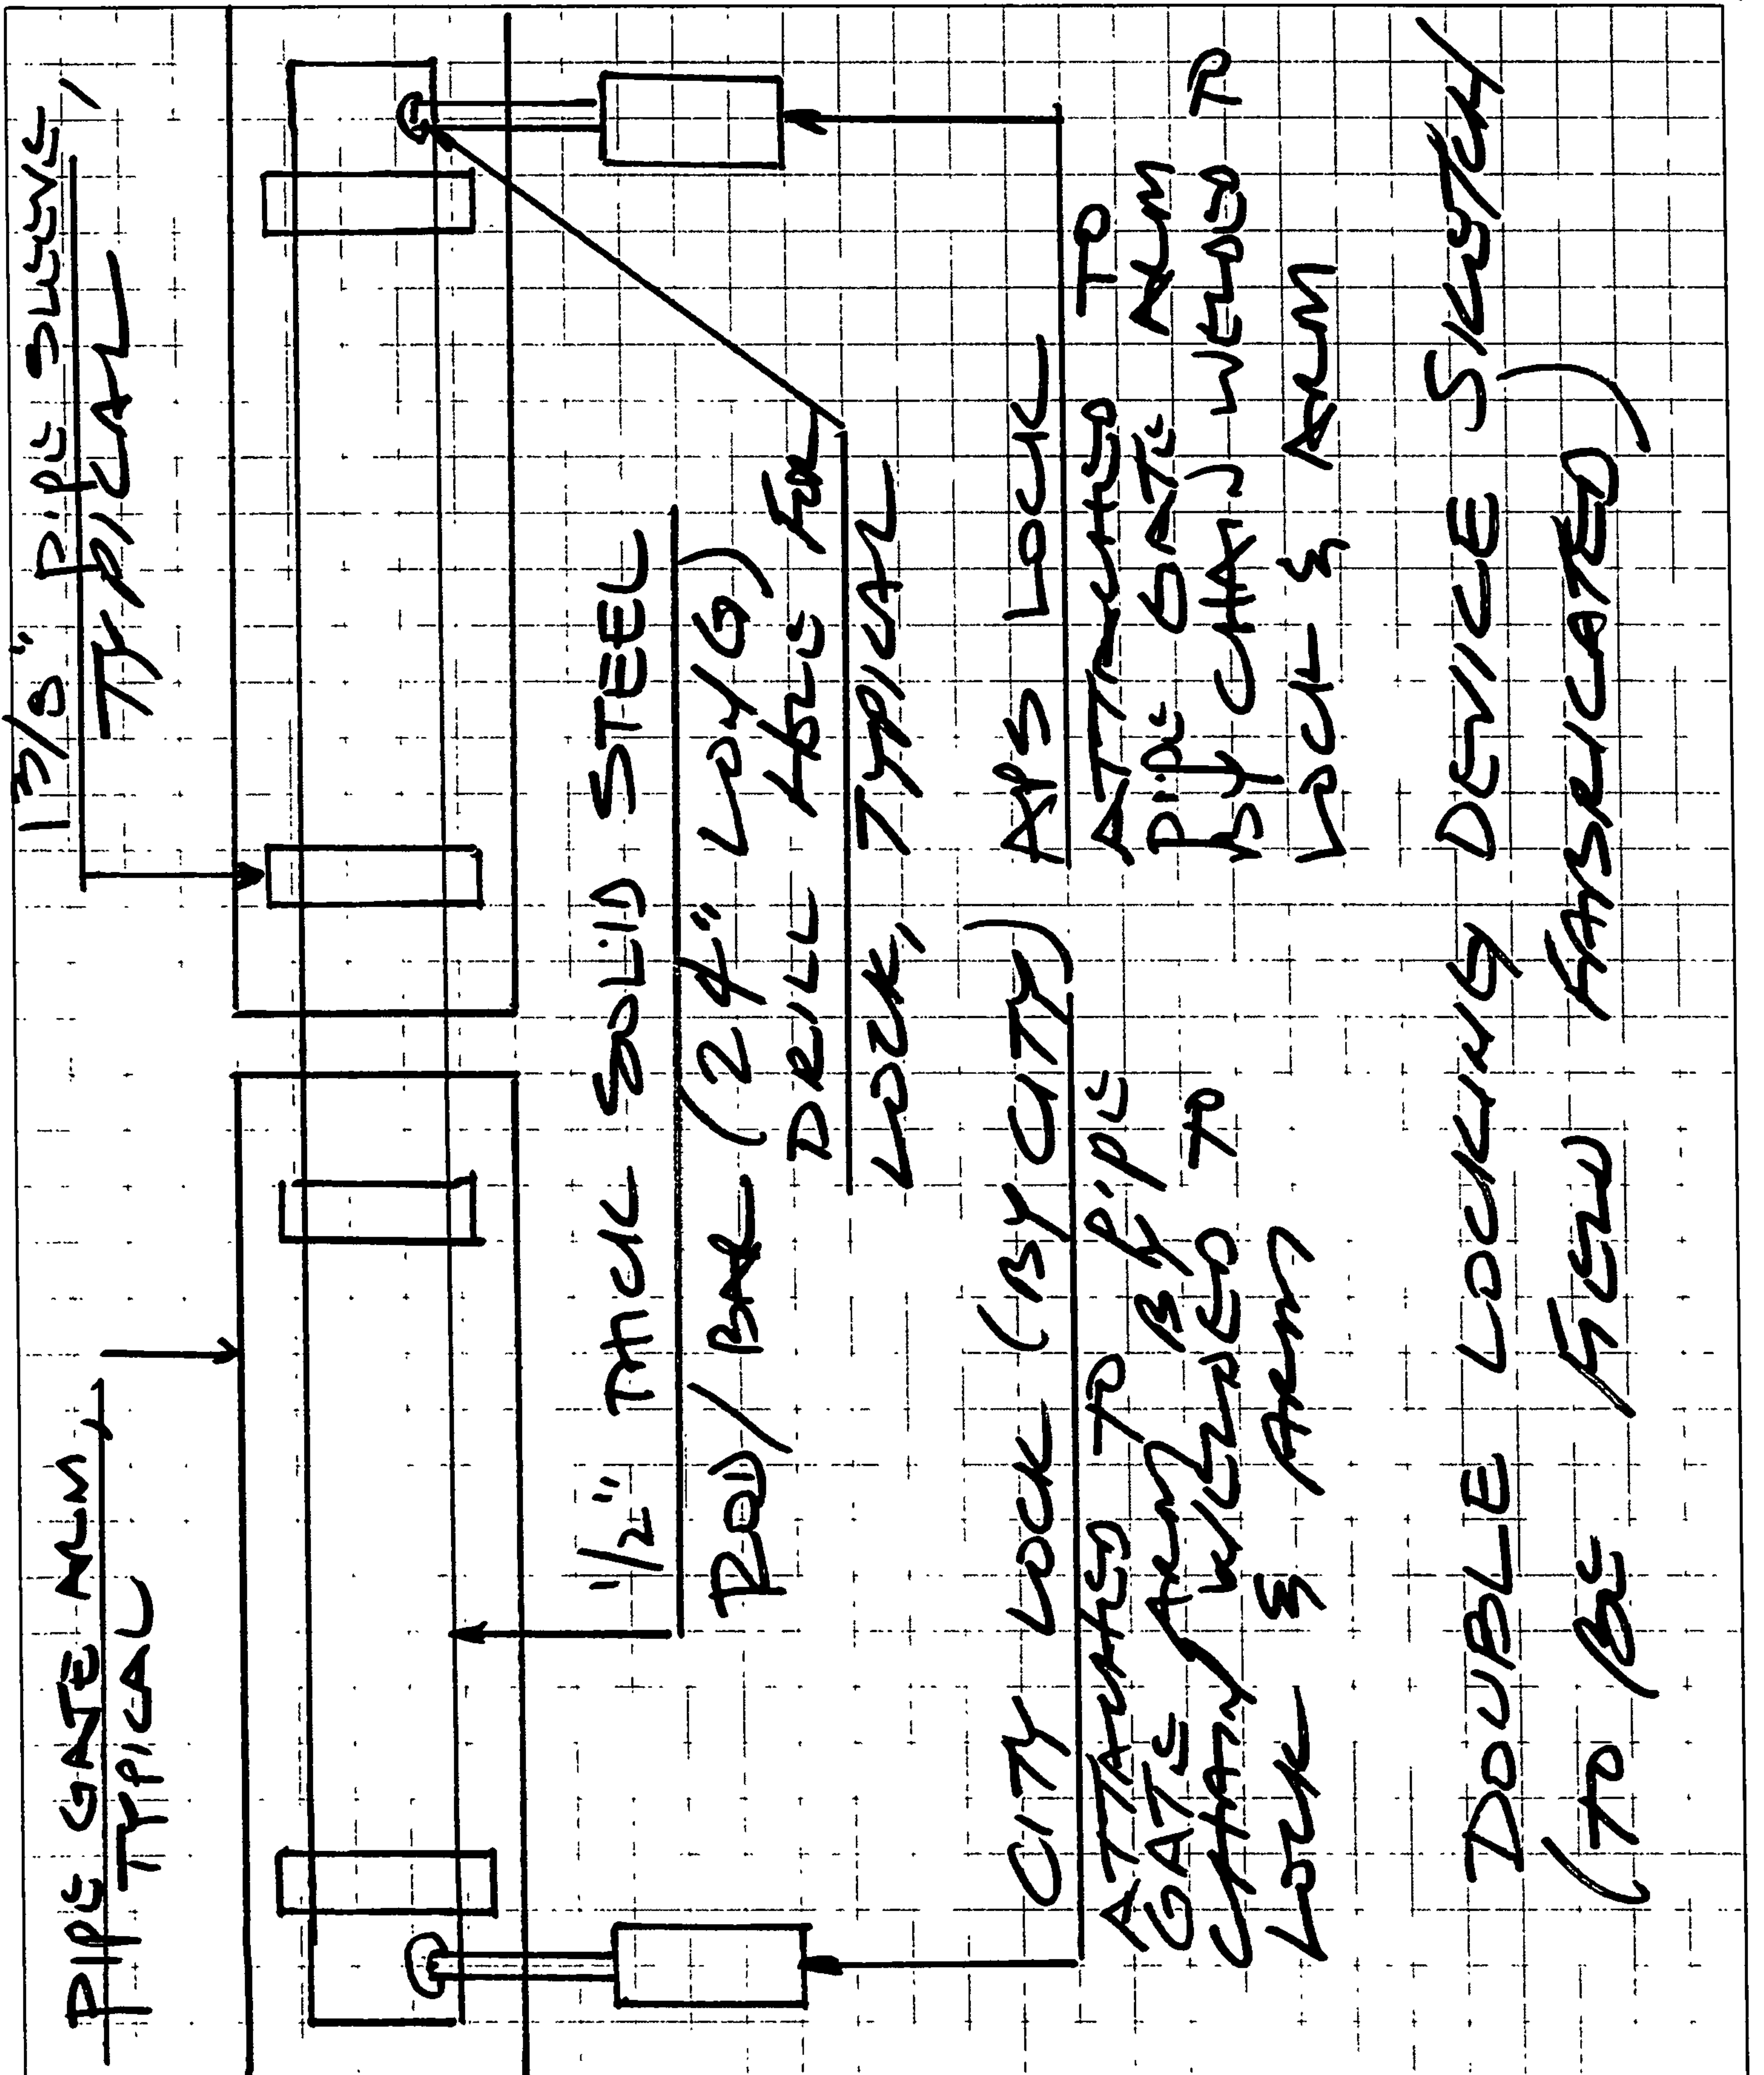 PIPE GATE ARM,
TYPICAL
1 3/8" PIPE SLEEVE,
TYPICAL
1/2" THICK SOLID STEEL
ROD/BAR (24" LONG)
DRILL HOLE FOR
LOCK, TYPICAL
CITY LOCK (BY CITY)
ATTACHED TO PIPE
GATE ARM BY
CHAIN WELDED TO
LOCK & ARM
APS LOCK
ATTACHED TO
PIPE GATE ARM
BY CHAIN WELDED TO
LOCK & ARM
DOUBLE LOCKING DEVICE SKETCH
(TO BE FIELD FABRICATED)